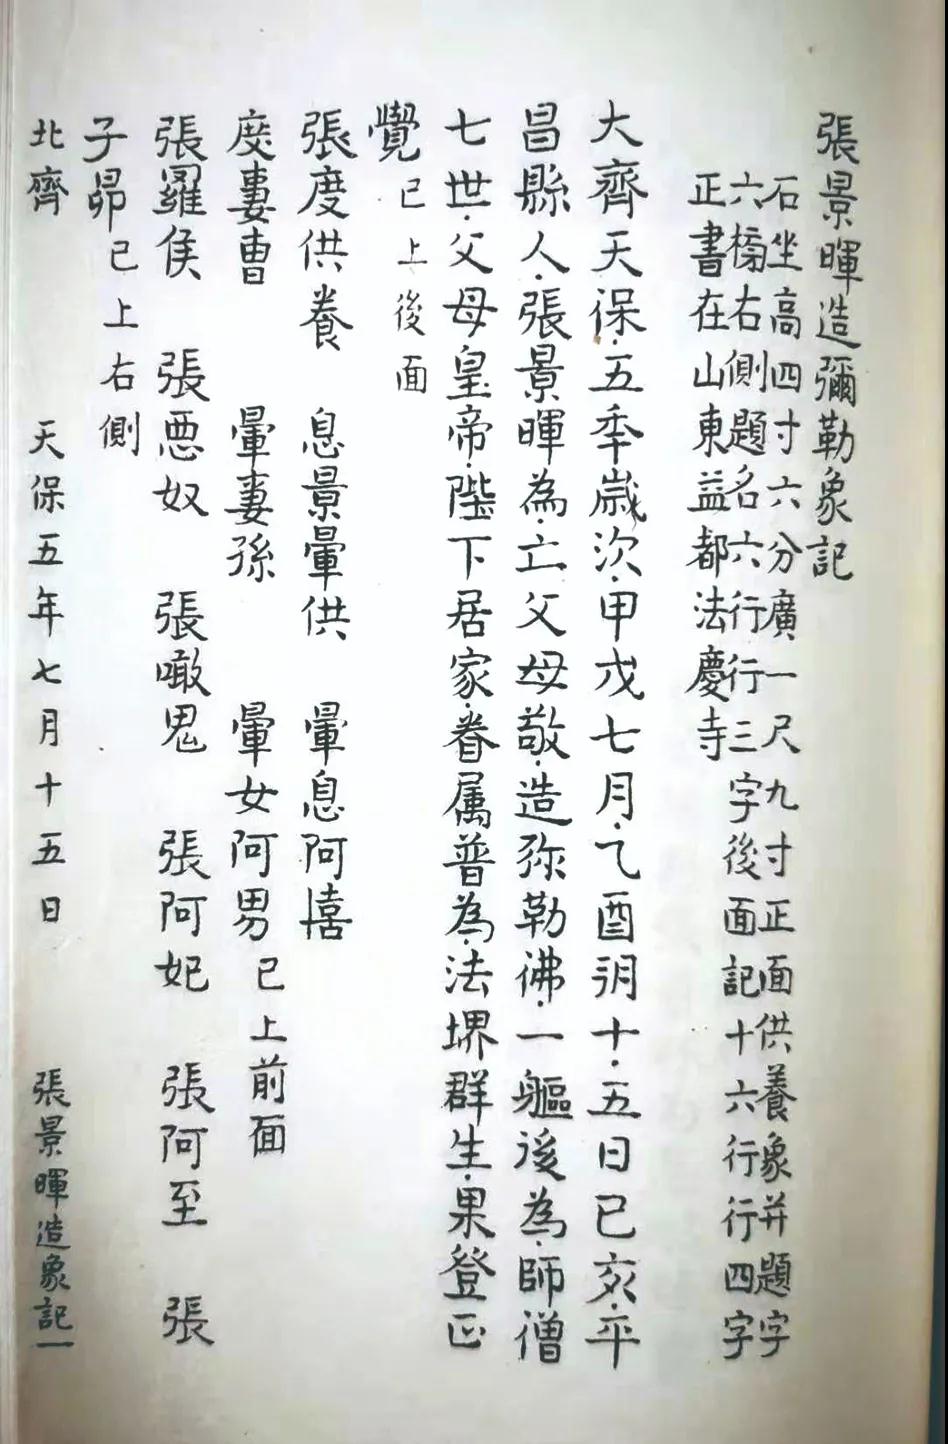 張景暉造彌勒象記
石坐高四寸六分廣一尺九寸正面供養象并題字
六榜右側題名六行行三字後面記十六行行四字
正書在山東益都法慶寺
大齊天保五秊歲次甲戌七月乙酉朔十五日已亥平
昌縣人張景暉為亡父母敬造弥勒佛一軀後為師僧
七世父母皇帝陛下居家眷属普為法堺群生果登正
覺 已上後面
張度供養 息景暈供 暈息阿憘
度妻曹 暈妻孫 暈女阿男 已上前面
張羅侯 張悪奴 張噉鬼 張阿妃 張阿至 張
子昴 已上右側
北齊 天保五年七月十五日 張景暉造象記一